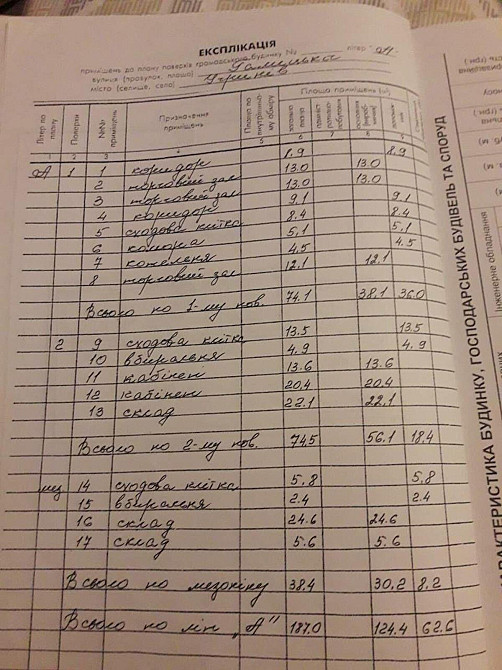 ЕКСПЛІКАЦІЯ
приміщень до плану поверхів громадського будинку № літер "А"
вулиця (провулок, площа) Галицька
місто (селище, село) Угринів
Літер по плану Поверхи №№ приміщень Призначення приміщень Площа по внутрішньому обміру Площа приміщень (м²)
1 2 3 4 5 6 7 8 9
"А" 1 1 коридор 8.9 8.9
2 торговий зал 13.0 13.0
3 торговий зал 13.0 13.0
4 коридор 9.1 9.1
5 сходова клітка 8.4 8.4
6 комора 5.1 5.1
7 котельня 4.5 4.5
8 торговий зал 12.1 12.1
Всього по 1-му пов. 74.1 38.1 36.0
2 9 сходова клітка 13.5 13.5
10 вбиральня 4.9 4.9
11 кабінет 13.6 13.6
12 кабінет 20.4 20.4
13 склад 22.1 22.1
Всього по 2-му пов. 74.5 56.1 18.4
мез 14 сходова клітка 5.8 5.8
15 вбиральня 2.4 2.4
16 склад 24.6 24.6
17 склад 5.6 5.6
Всього по мезоніну 38.4 30.2 8.2
Всього по літ "А" 187.0 124.4 62.6
ХАРАКТЕРИСТИКА БУДИНКУ, ГОСПОДАРСЬКИХ БУДІВЕЛЬ ТА СПОРУД
Інженерне обладнання